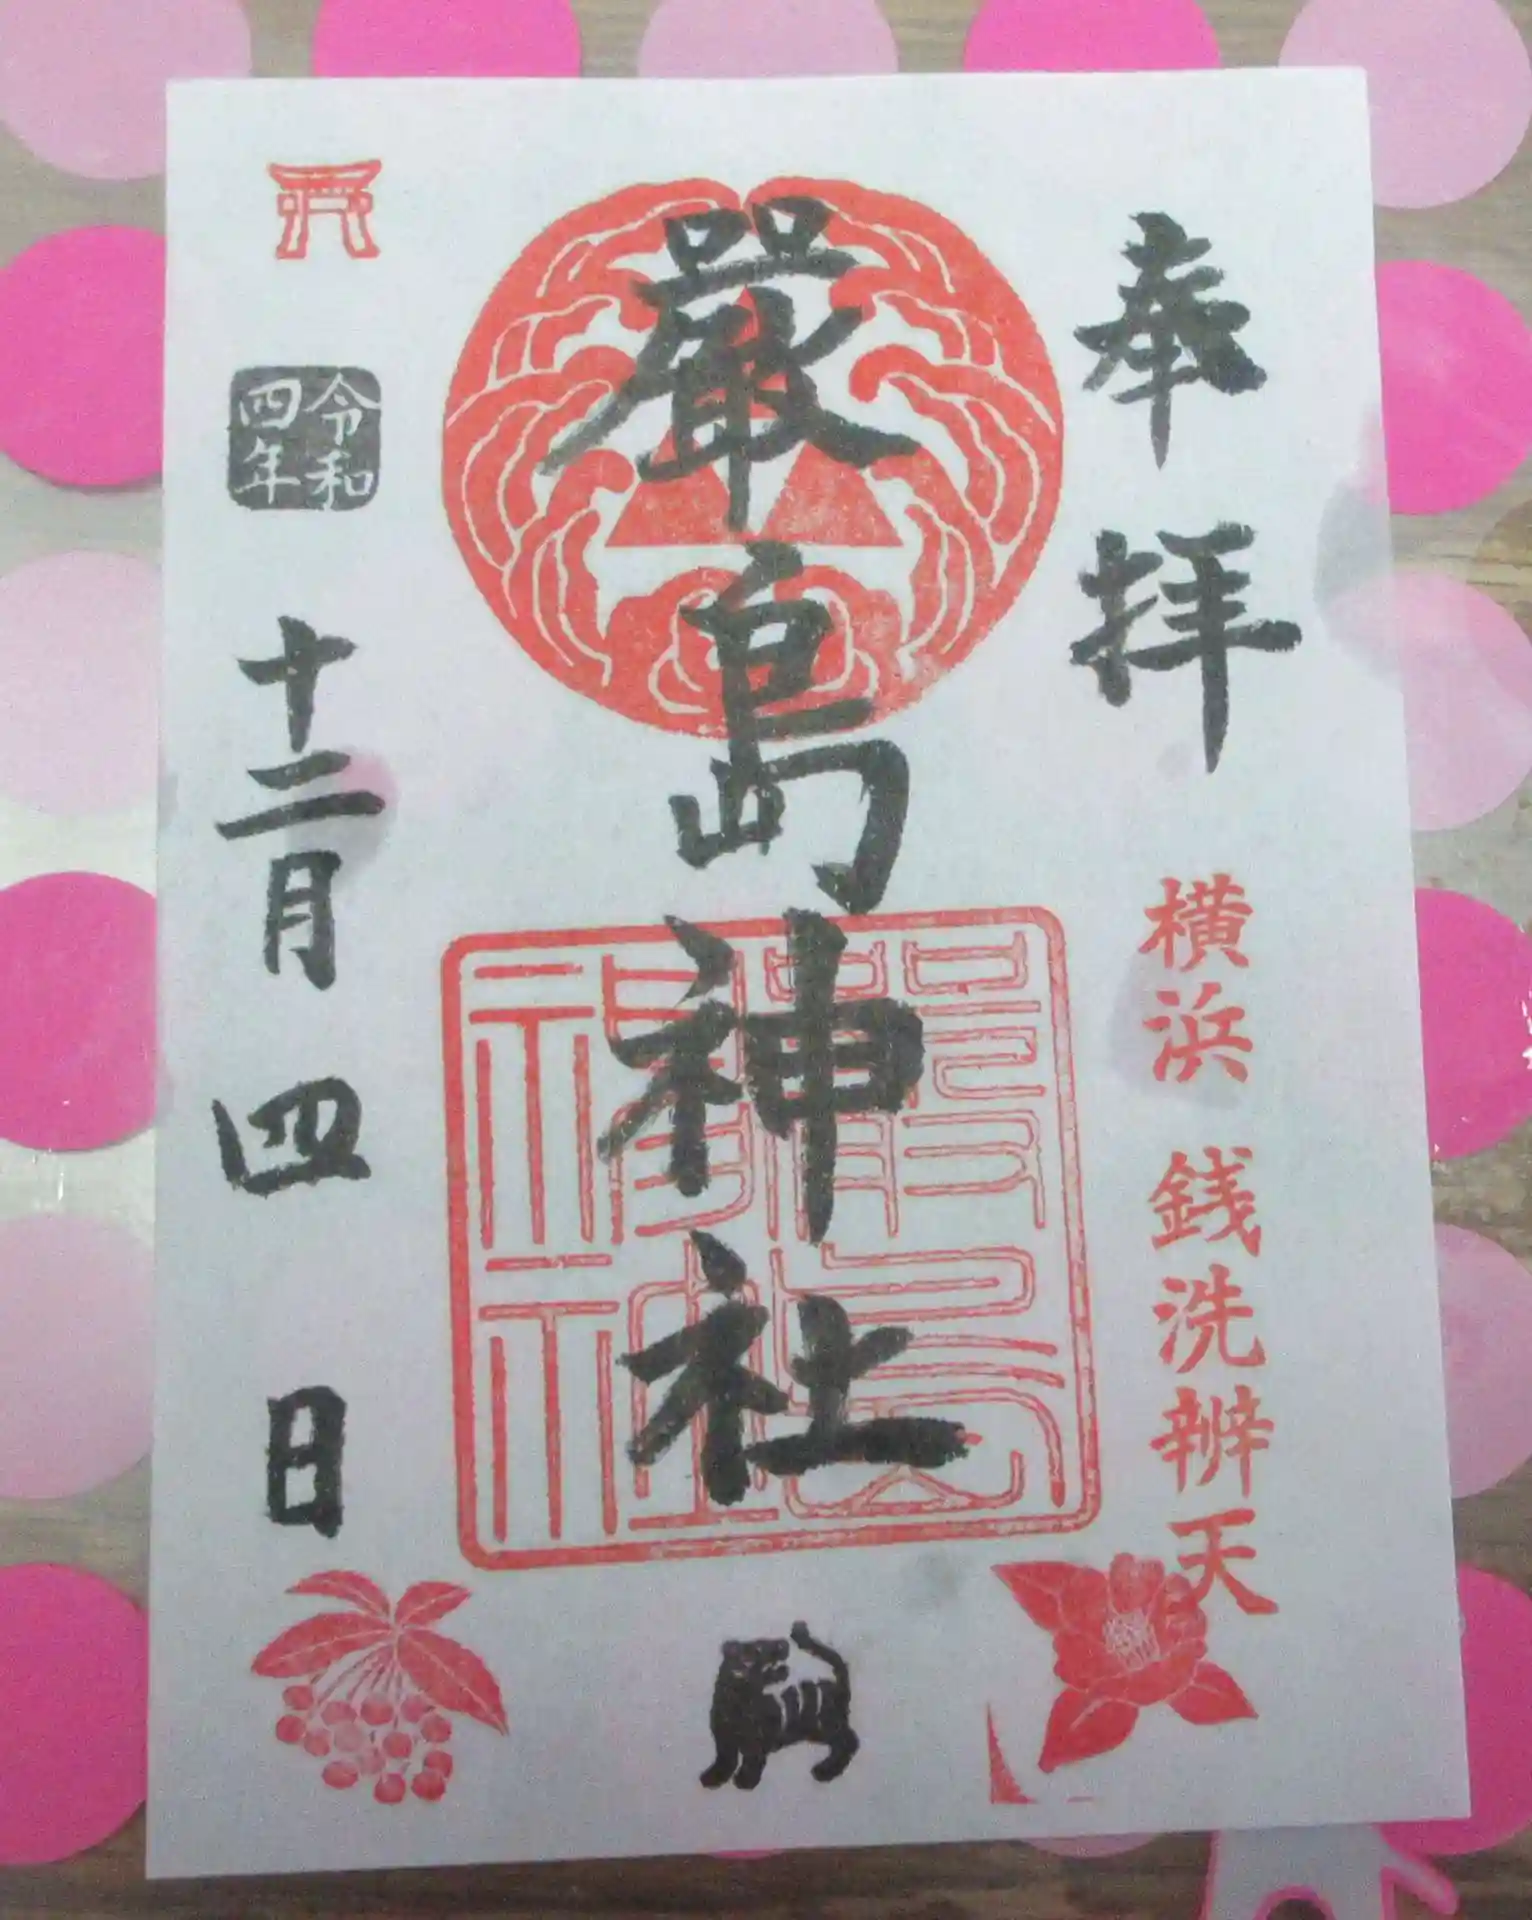 奉拝
横浜 銭洗辨天
嚴島神社
嚴島神社
令和四年
十二月四日